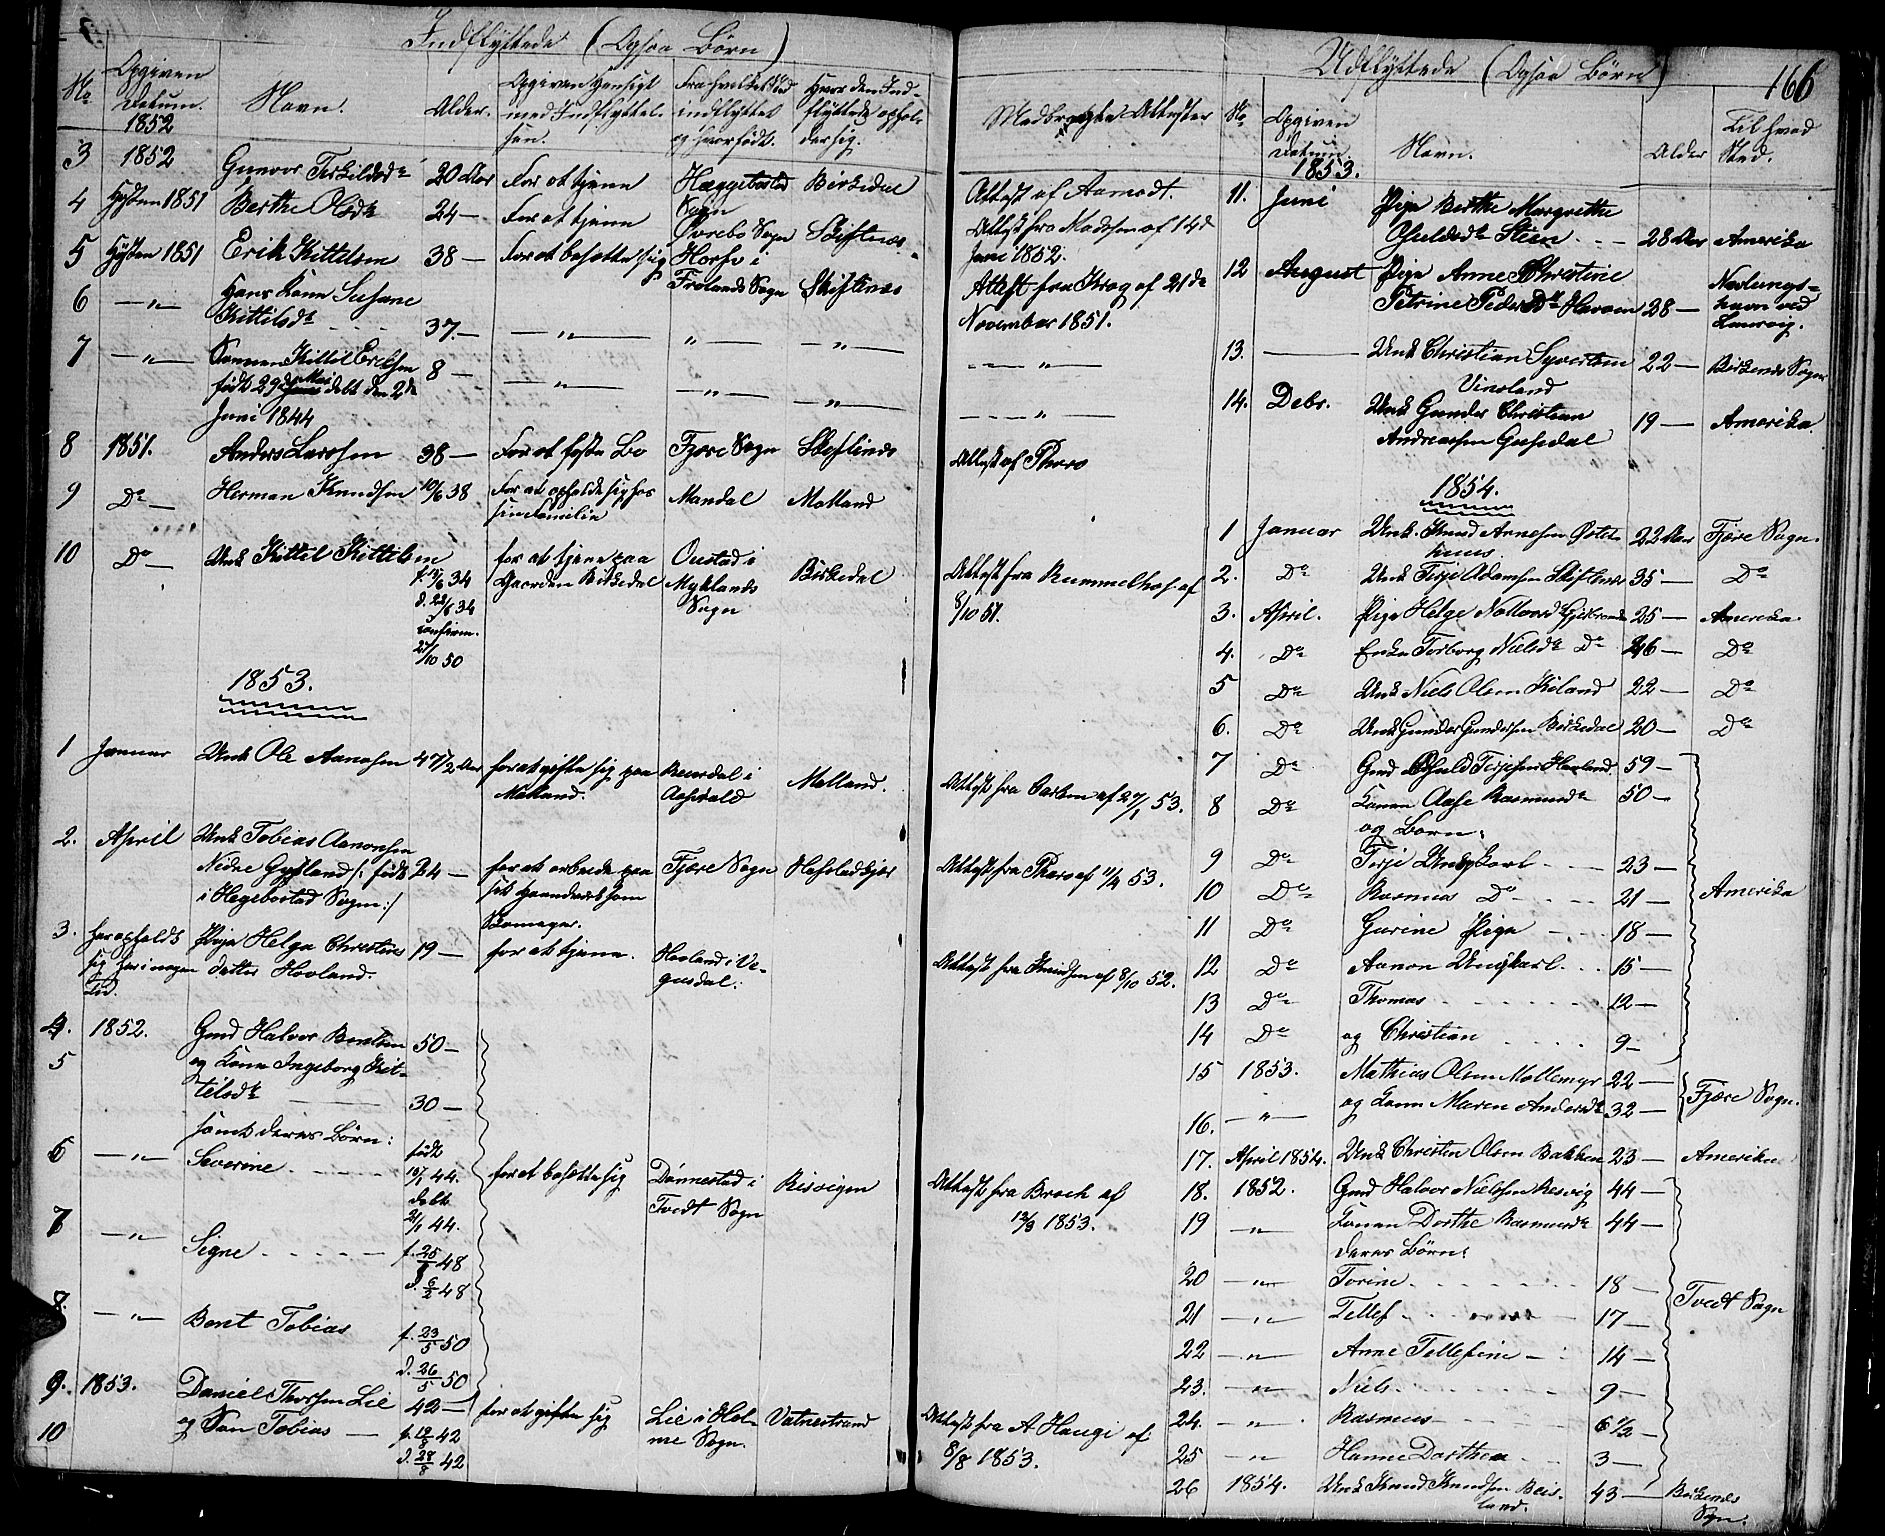 Indflyttede (Ogsaa Børn)
No
Opgiven Datum. 1852
Navn.
Alder.
Opgiven Hensigt med Indflyttelsen.
Fra hvilket Sted indflyttet og hvor født.
Hvor den Indflyttede opholder sig.
Medbragte Attester
3 1852 Gunvor Terkildsdr 20 Aar For at tjene Hæggebostad Sogn Birkedal Attest af Aamodt.
4 Høsten 1851 Berthe Olsdr 24 — For at tjene Øvrebø Sogn Skiftnes Attest fra Madssen af 14de Juni 1852.
5 Høsten 1851 Erik Kittelsen 38 — For at bosætte sig i Frolands Sogn Skiftenes Attest fra Krog af 21de November 1851.
6 —"— Hans Kone Susane Kittelsdr 37 — —"— —"— —"— —"—
7 —"— Sønnen Kittil Eriksen 8 — —"— —"— —"— —"—
født 29de Mai døbt den 2de
Juni 1844
8 1851. Anders Larssen 38 — For at fæste Bo Fjære Sogn Attest af
9 Do — Herman Knudsen 10/6 38 For at opholde sig hos sin Familie Mandal Molland
10 Do — Unk Kittel Kittelsen for at tjene paa Gaarden Birkedal i Myklands Sogn Birkedal Attest fra Rummelhof af 8/10 51.
34
confirm.
27/10 50
1853.
1 Januar Unk Ole Aanesen 47 1/2 Aar for at gifte sig paa Molland. i Molland. Attest fra af 27/1 53.
2. April Unk Tobias Aanonsen
Nedre Gysland /: født 24 — for at arbeide paa sit Haandverk som Skomager. Fjære Sogn Attest fra af 11/4 53.
i Hegebostad Sogn :/
3. har opholdt sig her i nogen Tid. Pige Helga Christensdatter Hovland. 19 — for at tjene. Hovland i Vegusdal. Attest fra Knudsen af 8/10 52.
4. 1852. Gmd Halvor Bentsen 50 —
5 og Kone Ingeborg Kittelsdr 30 —
samt deres Børn:
6 —"— Severine født 10/1 44. døbt 21/1 44. for at bosætte sig Dønnestad i Tvedt Sogn Resvigen Attest fra Broch af 12/3 1853.
7 —"— Signe f. 25 48 d. 6/2 48
8. —"— Bent Tobias f. 23/5 50 d. 26/5 50
9. 1853. Daniel Thorsen Lie 42 — for at gifte sig Lie i Holme Sogn. Vatnestrand Attest fra A Haugi af 8/8 1853.
10 og Søn Tobias — f. 42 d. 28/8 42
Udflyttede (Ogsaa Børn)
166
No
Opgiven Datum.
1853.
Navn.
Alder
Til hvad Sted.
11. Juni Pige Berthe Margrethe
Osuldsdr Steen 28 Aar Amerika
12 August Pige Anne Christine
Petrine Pedersdr 28 — Nevlungshavn ved Laurvig.
13. — Unk Christian Syvertsen 22 — Birkenes Sogn
Vinsland
14. Debr. Unk Gunder Christian
Andreassen 19 — Amerika
1854.
1 Januar Unk. Knud Arnesen 22 Aar Fjære Sogn.
2. Do Unk Terje Adamsen Skiftenes 35 — Do
3. April. Pige Helge 25 — Amerika.
4. Do Enke Torborg Nielsdr Do 46 — Do
5 Do Unk Niels Olsen 22 — Do
6. Do Unk Gunder Gundersen Birkedal 20 — Do
7 Do Gmd Osuld Terjesen 59 —
8 Do Konen Aase Rasmusdr 50 —
og Børn:
9 Do Terje Ungkarl 23 —
10 Do Rasmus Do 21 — Amerika
11 Do Gurine Pige 18 —
12 Do Aanon Ungkarl 15 —
13 Do Thomas 12 —
14 Do og Christian 9 —
15 1853. Mathias Olsen Mollemyr 22 — Fjære Sogn.
16. —"— og Kone Maren Andersdr 32 —
17. April 1854. Unk Christen Olsen Bakken 23 — Amerika
18. 1852. Gmd Halvor Nielsen Resvig 44 —
19 —"— Konen Dorthe Rasmusdr 44 —
deres Børn:
20 —"— Torine 18 — Tvedt Sogn
21 —"— Tellef 17 —
22 —"— Anne Tellefine 14 —
23. —"— Niels 9 —
24. —"— Rasmus 6 1/2 —
25 —"— Hanne Dorthea 3 —
26 1854. Unk Knud Knudsen Beisland. 43 — Birkenes Sogn.